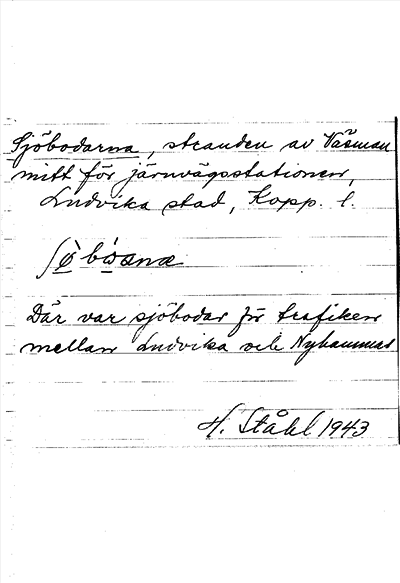 Sjöbodarna, stranden av Väsman
mitt för järnvägsstationen,
Ludvika stad, Kopp. l.
Där var sjöbodar för trafiken
mellan Ludvika och Nyhammar
H. Ståhl 1943